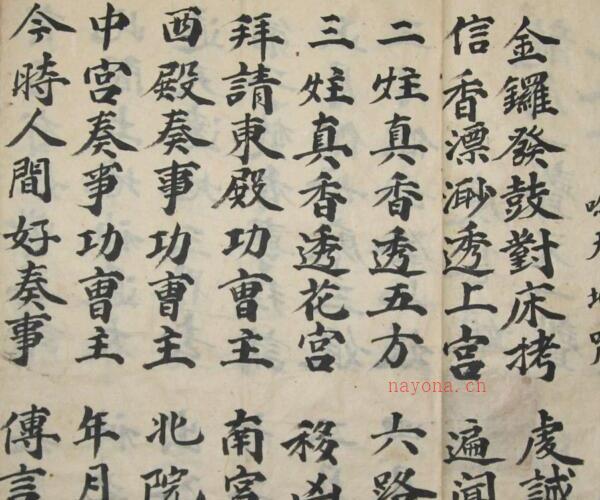 金鑼發鼓對床拷 虔誠
信香漂渺透上宮 遍聞
二炷真香透五方 六路
三炷真香透花宮 移凶
拜請東殿功曹主 南宮
西殿奏事功曹主 北院
中宮奏事功曹主 年月
今時人間好奏事 傳言
nayona.cn